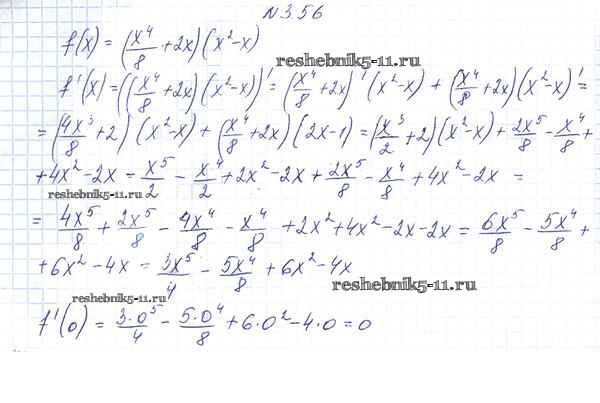 №356
f(x) = (x⁴/8 + 2x)(x² - x)
reshebnik5-11.ru
f'(x) = ((x⁴/8 + 2x)(x² - x))' = (x⁴/8 + 2x)'(x² - x) + (x⁴/8 + 2x)(x² - x)' =
= (4x³/8 + 2)(x² - x) + (x⁴/8 + 2x)(2x - 1) = (x³/2 + 2)(x² - x) + 2x⁵/8 - x⁴/8 +
+ 4x² - 2x = x⁵/2 - x⁴/2 + 2x² - 2x + 2x⁵/8 - x⁴/8 + 4x² - 2x =
reshebnik5-11.ru
= 4x⁵/8 + 2x⁵/8 - 4x⁴/8 - x⁴/8 + 2x² + 4x² - 2x - 2x = 6x⁵/8 - 5x⁴/8 +
+ 6x² - 4x = 3x⁵/4 - 5x⁴/8 + 6x² - 4x
reshebnik5-11.ru
reshebnik5-11.ru
f'(0) = 3·0⁵/4 - 5·0⁴/8 + 6·0² - 4·0 = 0